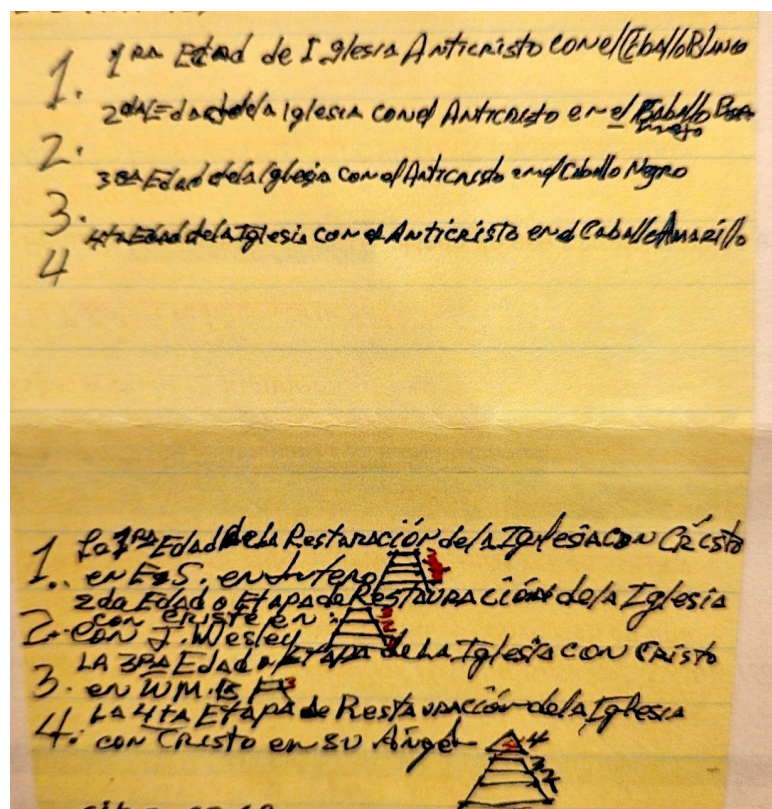 1. 1RA Edad de Iglesia Anticristo con el Caballo Blanco
2. 2da Edad de la Iglesia con el Anticristo en el Caballo
3. 3RA Edad de la Iglesia con el Anticristo en el Caballo Negro
4 4ta Edad de la Iglesia con el Anticristo en el Caballo Amarillo
1. La 1RA Edad de la Restauración de la Iglesia con Cristo
en E=S. en Lutero 1
2da Edad o Etapa de Restauración de la Iglesia
con Cristo en:
2. con J. Wesley
LA 3RA Edad o ETAPA de LA Iglesia con Cristo
3. en WM. B 3
LA 4ta ETAPA de Restauración de la Iglesia
4. con Cristo en su Ángel 4
3
2